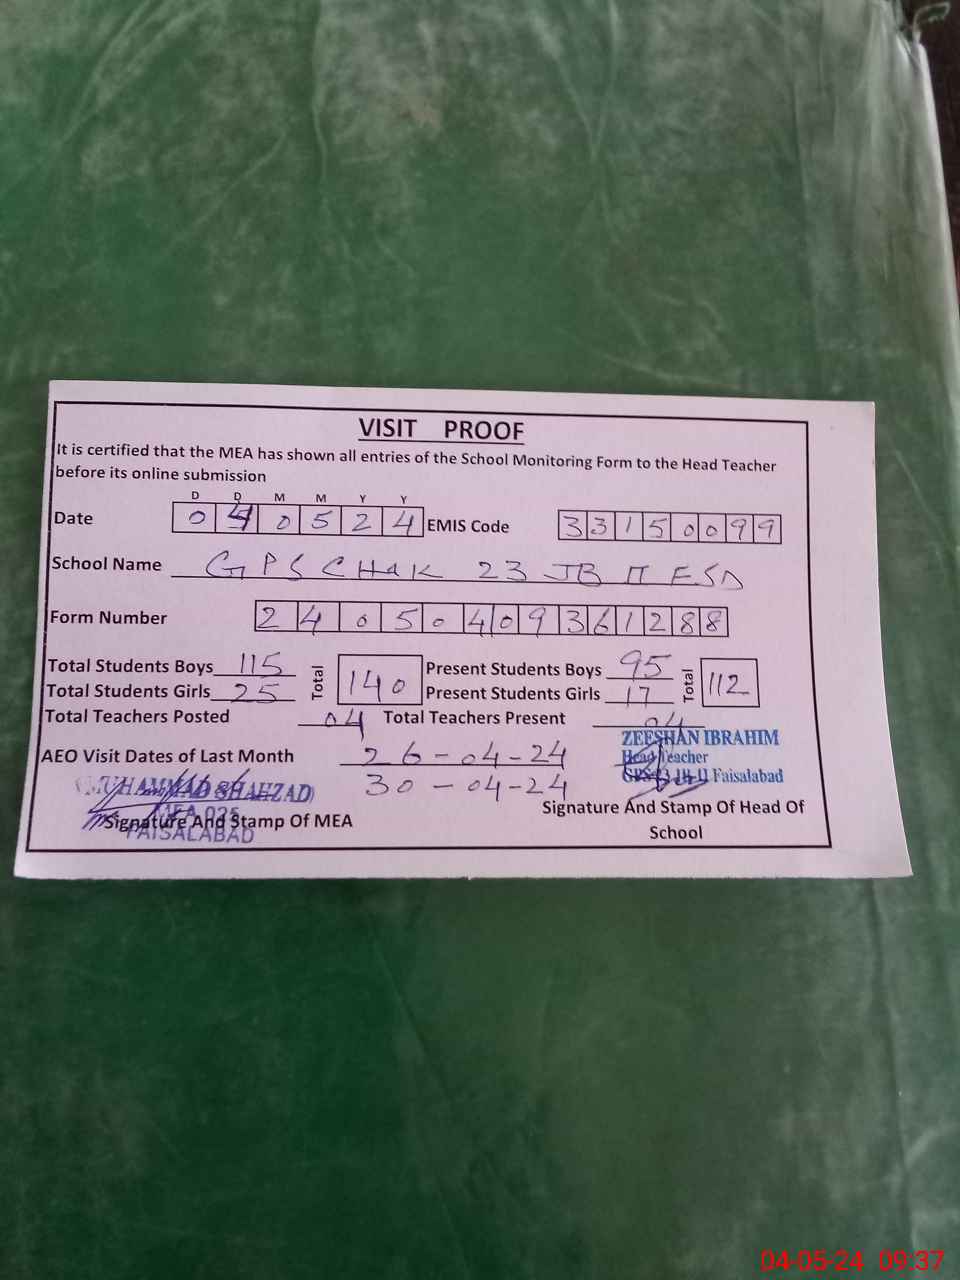 VISIT PROOF
It is certified that the MEA has shown all entries of the School Monitoring Form to the Head Teacher
before its online submission
D D M M Y Y
Date 0 4 0 5 2 4 EMIS Code 3 3 1 5 0 0 9 9
School Name GPS CHAK 23 JB II FSD
Form Number 2 4 0 5 0 4 0 9 3 6 1 2 8 8
Total Students Boys 115 Total 140 Present Students Boys 95 Total 112
Total Students Girls 25 Present Students Girls 17
Total Teachers Posted 04 Total Teachers Present 04
AEO Visit Dates of Last Month 26-04-24
30-04-24
ZEESHAN IBRAHIM
Head Teacher
Faisalabad
(MUHAMMAD SHAHZAD)
MEA 025
FAISALABAD
Signature And Stamp Of MEA
Signature And Stamp Of Head Of
School
04-05-24 09:37